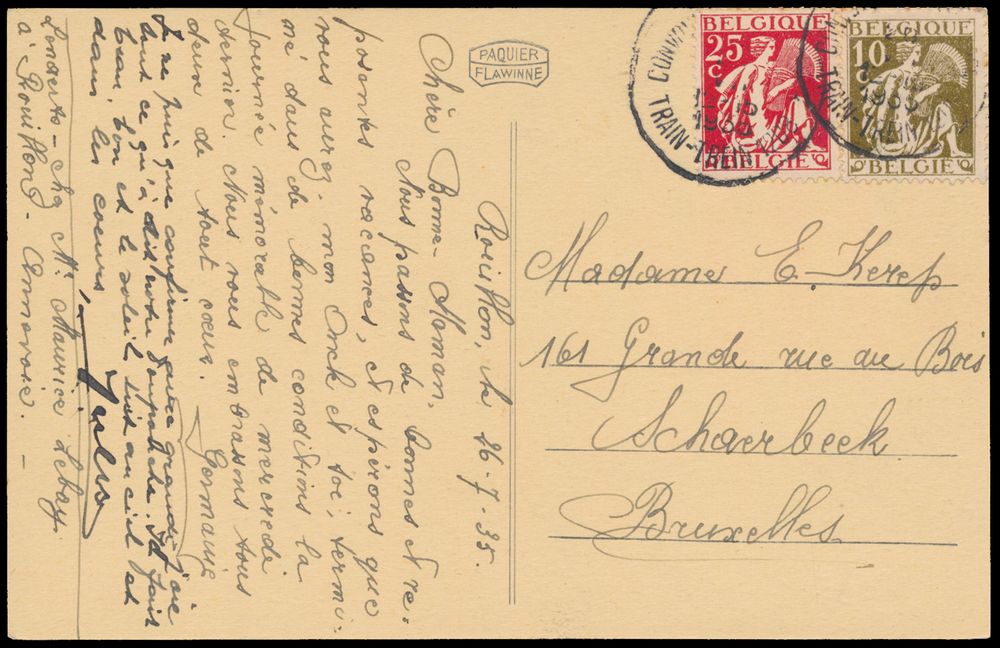 PAQUIER
FLAWINNE
BELGIQUE
25
c
BELGIE
BELGIQUE
10
c
BELGIE
TRAIN-TREIN
1935
TREIN
1935
Rouillon, le 26-7-35.
Chère Bonne-Maman,
Nous passons de bonnes et re-
posantes vacances, et espérons que
vous aurez, mon Onck et toi, termi-
né dans de bonnes conditions la
journée mémorable de mercredi
dernier. Nous vous embrassons tous
deux de tout coeur.
Germaine
Je ne puis que confirmer
tout ce qu'a dit Il fait
beau, bon et le soleil est au ciel et
dans les coeurs
Jules
Mr. Maurice Lebay.
à Rouillon - Annevoie. -
Madame E. Kerep
161 Grande rue au Bois
Schaerbeek
Bruxelles